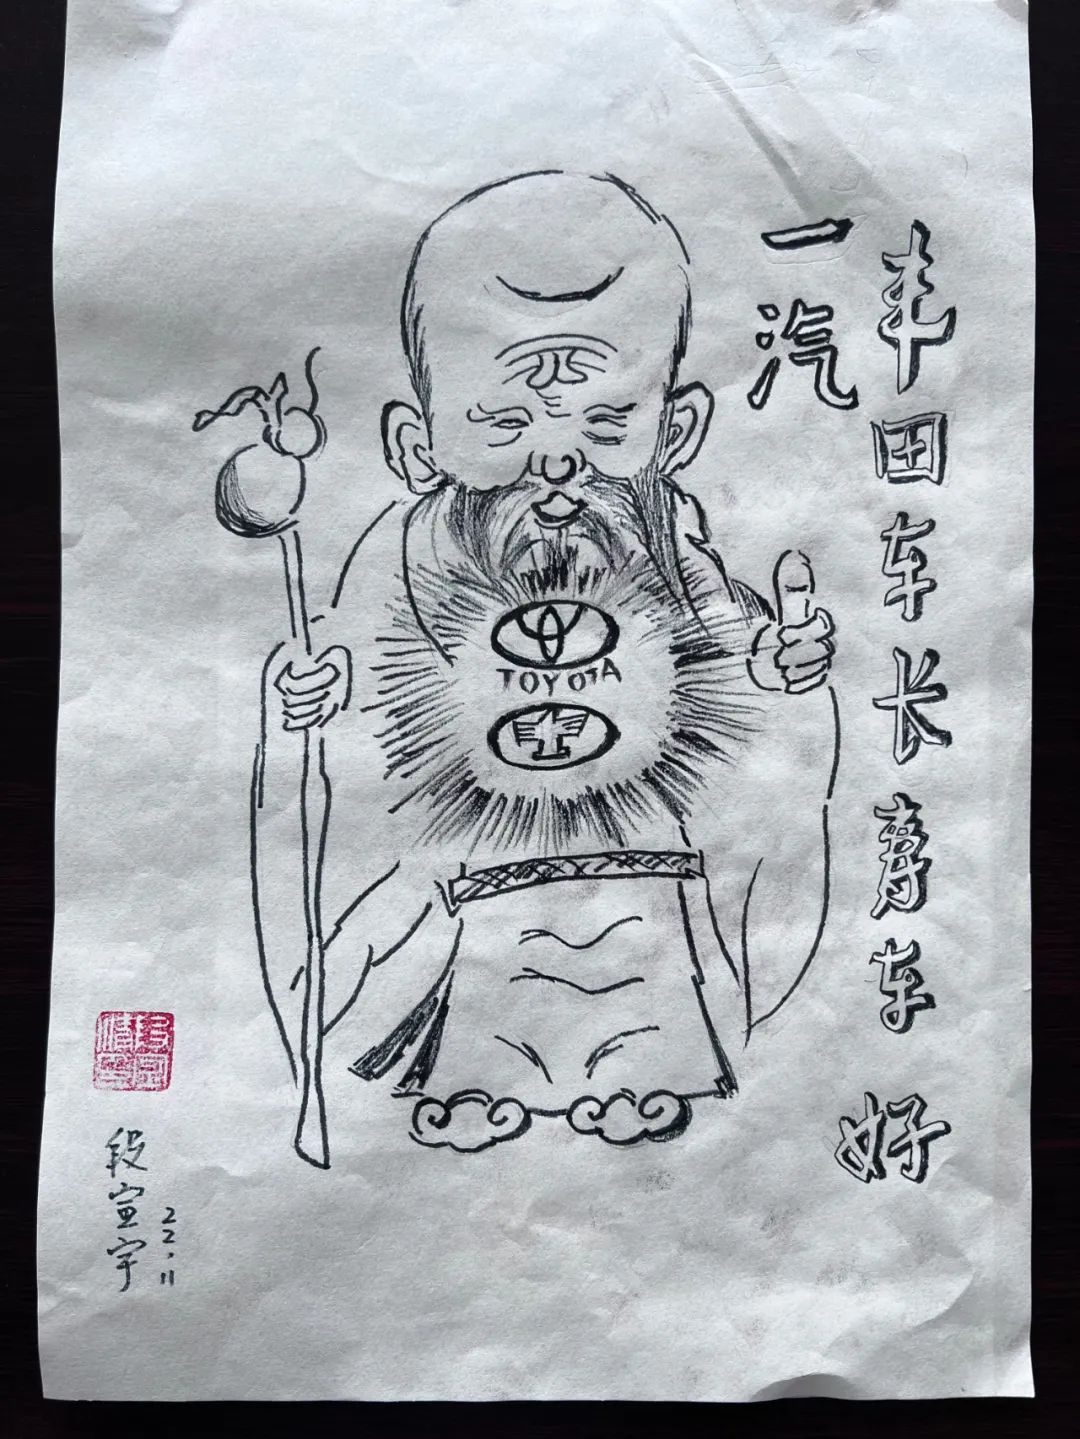 一汽
丰田车长寿车好
TOYOTA
段宣宇
22.11